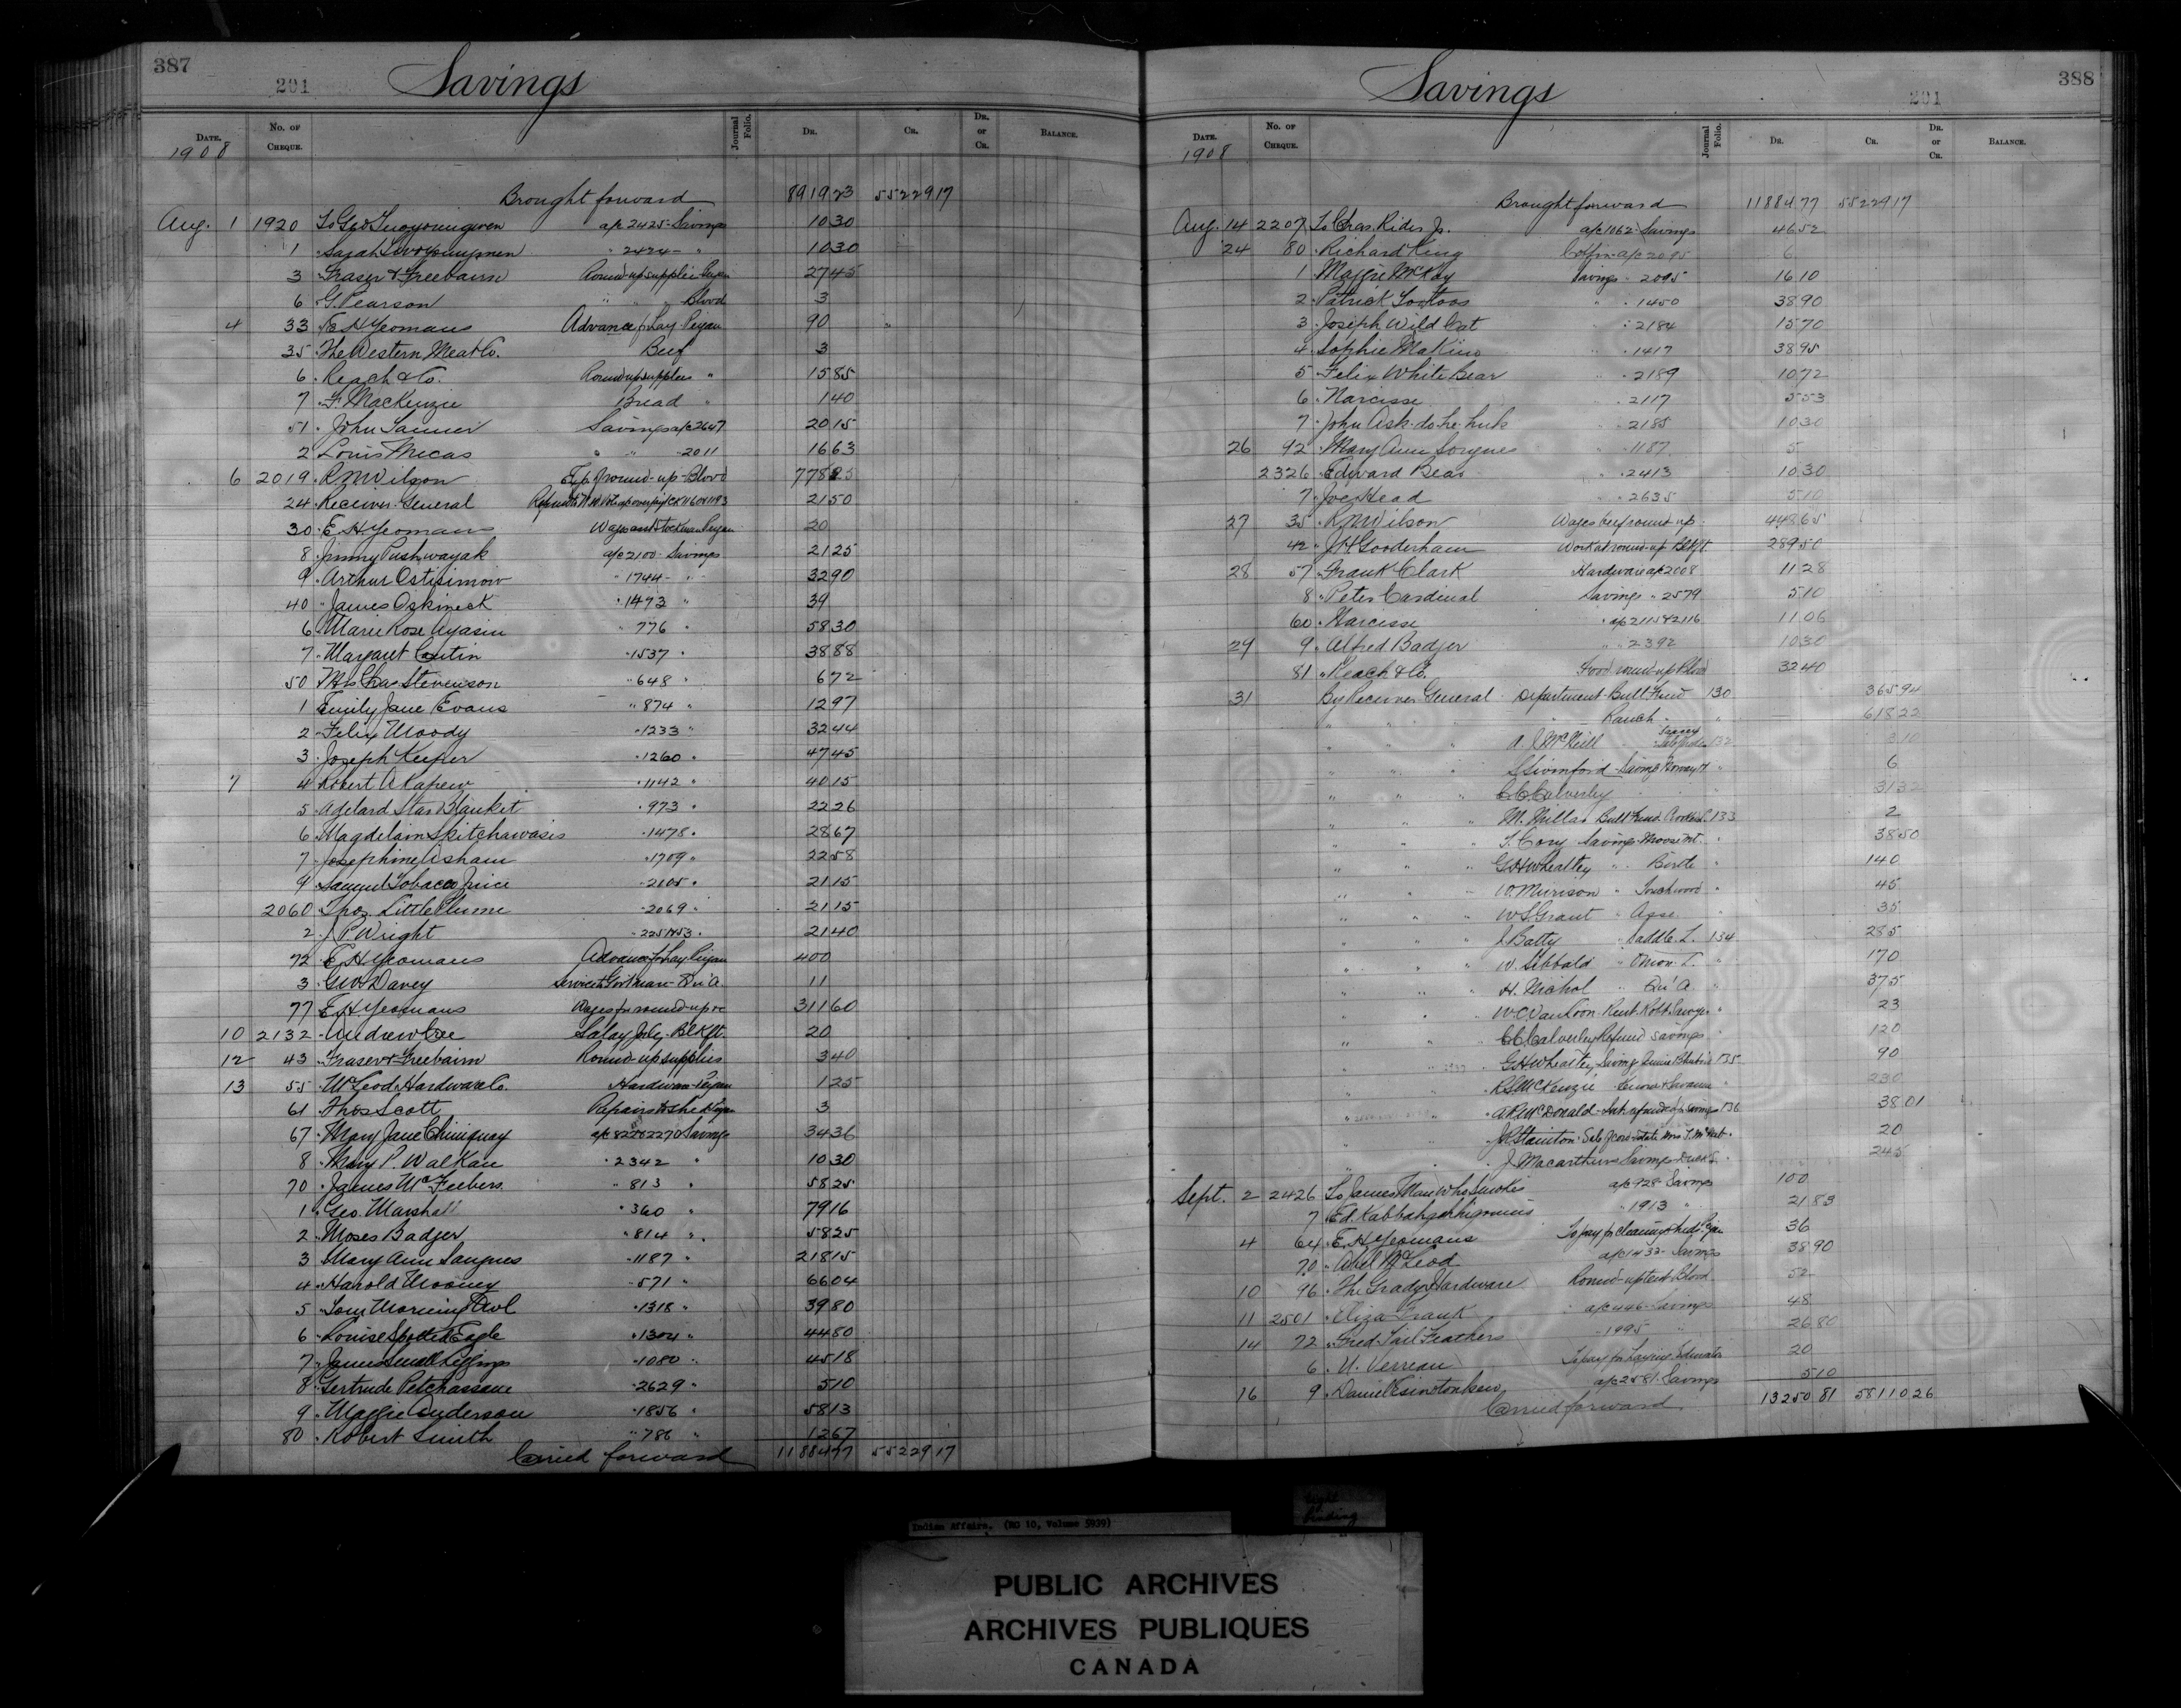 387
201
Savings
DATE.
No. OF CHEQUE.
Journal Folio.
DR.
CR.
DR. or CR.
BALANCE.
1908
Brought forward 891923 5522917
Aug. 1 1920 To Geo a/c 2425 - Savings 1030
1 " Sarah " 2424 - " 1030
3 " Fraser & Freebairn Round-up supplies Peigan 2745
6 " G. Pearson " " Blood 3
4 33 " E H Yeomans Advance for Hay Peigan 90
35 " The Western Meat Co. Beef 3
6 " Reach & Co. Round up supplies " 1585
7 " F. MacKenzie Bread " 140
51 " John Tanner Savings a/c 2647 2015
2 Louis Micas " " 2011 1663
6 2019 " R N Wilson Exp. of round-up - Blood
24 " Receiver General 2150
30 " E. H. Yeomans Wages and Stockman Peigan 20
8 " Jimmy Pushwayak a/c 2100 - Savings 2125
9 " Arthur Ostisimow " 1744 - " 3290
40 " James Oskineck " 1473 " 39
6 " Marie Rose Ayasin " 776 " 5830
7 " Margaret Cutin " 1537 " 3888
50 " Mrs Chas Stevenson " 648 " 672
1 Emily Jane Evans " 874 " 1297
2 " Felix Moody " 1233 " 3244
3 " Joseph Keeper " 1260 " 4745
7 4 Robert A Kapew " 1142 " 4015
5 " Adelard Star Blanket " 973 " 2226
6 " Magdelain Skitchawasis " 1478 " 2867
7 " Josephine Asham " 1709 " 2258
9 " Samuel Tobacco Juice " 2105 " 2115
2060 " Thos. Little Plume " 2069 " 2115
2 " J. P. Wright 2140
72 " E H Yeomans Advance for Hay Peigan 400
3 " Geo. Davey Services 11
77 " E H Yeomans Wages for round-up 31160
10 2132 " Andrew Coe Salary July - Blkft. 20
12 43 " Fraser & Freebairn Round-up supplies 340
13 55 " McLeod Hardware Co. Hardware Peigan 125
61 " Thos Scott Repairs to shed Peigan 3
67 " Mary Jane Chiniquay Savings 3436
8 " Mary P. Walkau " 2342 " 1030
70 " James McFeebers " 813 " 5825
1 " Geo. Marshall " 360 " 7916
2 " Moses Badger " 814 " 5825
3 " Mary Ann Sangnes " 1187 " 21815
4 " Harold Mooney " 571 " 6604
5 " Tom Morning Owl " 1318 " 3980
6 " Louise Spotted Eagle " 1304 " 4480
7 " James Small Leggings " 1080 " 4518
8 " Gertrude Petchassane " 2629 " 510
9 " Maggie Anderson " 1856 " 5813
80 " Robert Smith " 786 " 1267
Carried forward 1188477 5522917
388
201
Savings
DATE.
No. OF CHEQUE.
Journal Folio.
DR.
CR.
DR. or CR.
BALANCE.
1908
Brought forward 1188477 5522917
Aug. 14 2207 To Chas. Rider Jr. a/c 1062 - Savings 4652
24 80 " Richard King Coffin a/c 2095 6
1 " Maggie McKay Savings - 2095 1610
2 " Patrick Tootoos " " 1450 3890
3 " Joseph Wild Cat " 2184 1570
4 " Sophie Makino " " 1417 3895
5 " Felix White Bear " " 2189 1072
6 " Narcisse " 2117 553
7 " John Ask-do-he-huk " " 2185 1030
26 92 " Mary Ann Sorgnes " 1187 5
2326 " Edward Bear " 2413 1030
7 " Joe Head " " 2635 510
27 35 " R N Wilson Wages beef round up 44865
42 " J H Gooderham Work at round-up Blkft. 28950
28 57 " Frank Clark Hardware a/c 2008 1128
8 " Peter Cardinal Savings " 2579 510
60 " Narcisse " a/c 2115 & 2116 1106
29 9 " Alfred Badger " " 2392 1030
81 " Reach & Co. Food round-up Blood 3240
31 By Receiver General Department Bull Fund 130 36594
" " " " Ranch " " 61822
" " " A. J. McNeill 132 310
" " " S Swinford - Savings " 6
" " " C. C. Calverley " " 3132
" " " M. Millar Bull Fund 133 2
" " " T. Cory Savings Moose Mt. " 3850
" " " G H Wheatley " Birtle " 140
" " " W. Murison " Touchwood " 45
" " " W S. Grant " Asse. " 35
" " " J Batty " Saddle L. 134 285
" " " W. Sibbald " Onion L. " 170
" " " H. Nichol " Qu'A. " 375
" " " W. C. VanLoon - Rent Robt. Savage " 23
" " " C C Calverley Refund Savings " 120
" " " G H Wheatley Savings 135 90
" " " R S McKenzie - Kenora & Savanne " 230
" " " A R McDonald - savings 136 3801
" " " J R Stainton - Sale of cow Estate Mrs T. McNab " 20
" " " J Macarthur Savings Duck L. " 245
Sept. 2 2426 To James Man Who Smokes a/c 928 - Savings 100
7 " Ed. " 1913 " 2183
4 64 " E H Yeomans To pay for cleaning sheds Peigan 36
70 " Abel McLeod a/c 1432 - Savings 3890
10 96 " The Grady Hardware Round-up tent Blood 52
11 2501 " Eliza Frank " a/c 446 - Savings 48
14 72 " Fred Tail Feathers " 1995 " 2680
6 " U. Verreau 20
16 9 " Daniel a/c 2581 - Savings 510
Carried forward 1325081 5811026
Indian Affairs. (RG 10, Volume 5939)
tight binding
PUBLIC ARCHIVES
ARCHIVES PUBLIQUES
CANADA